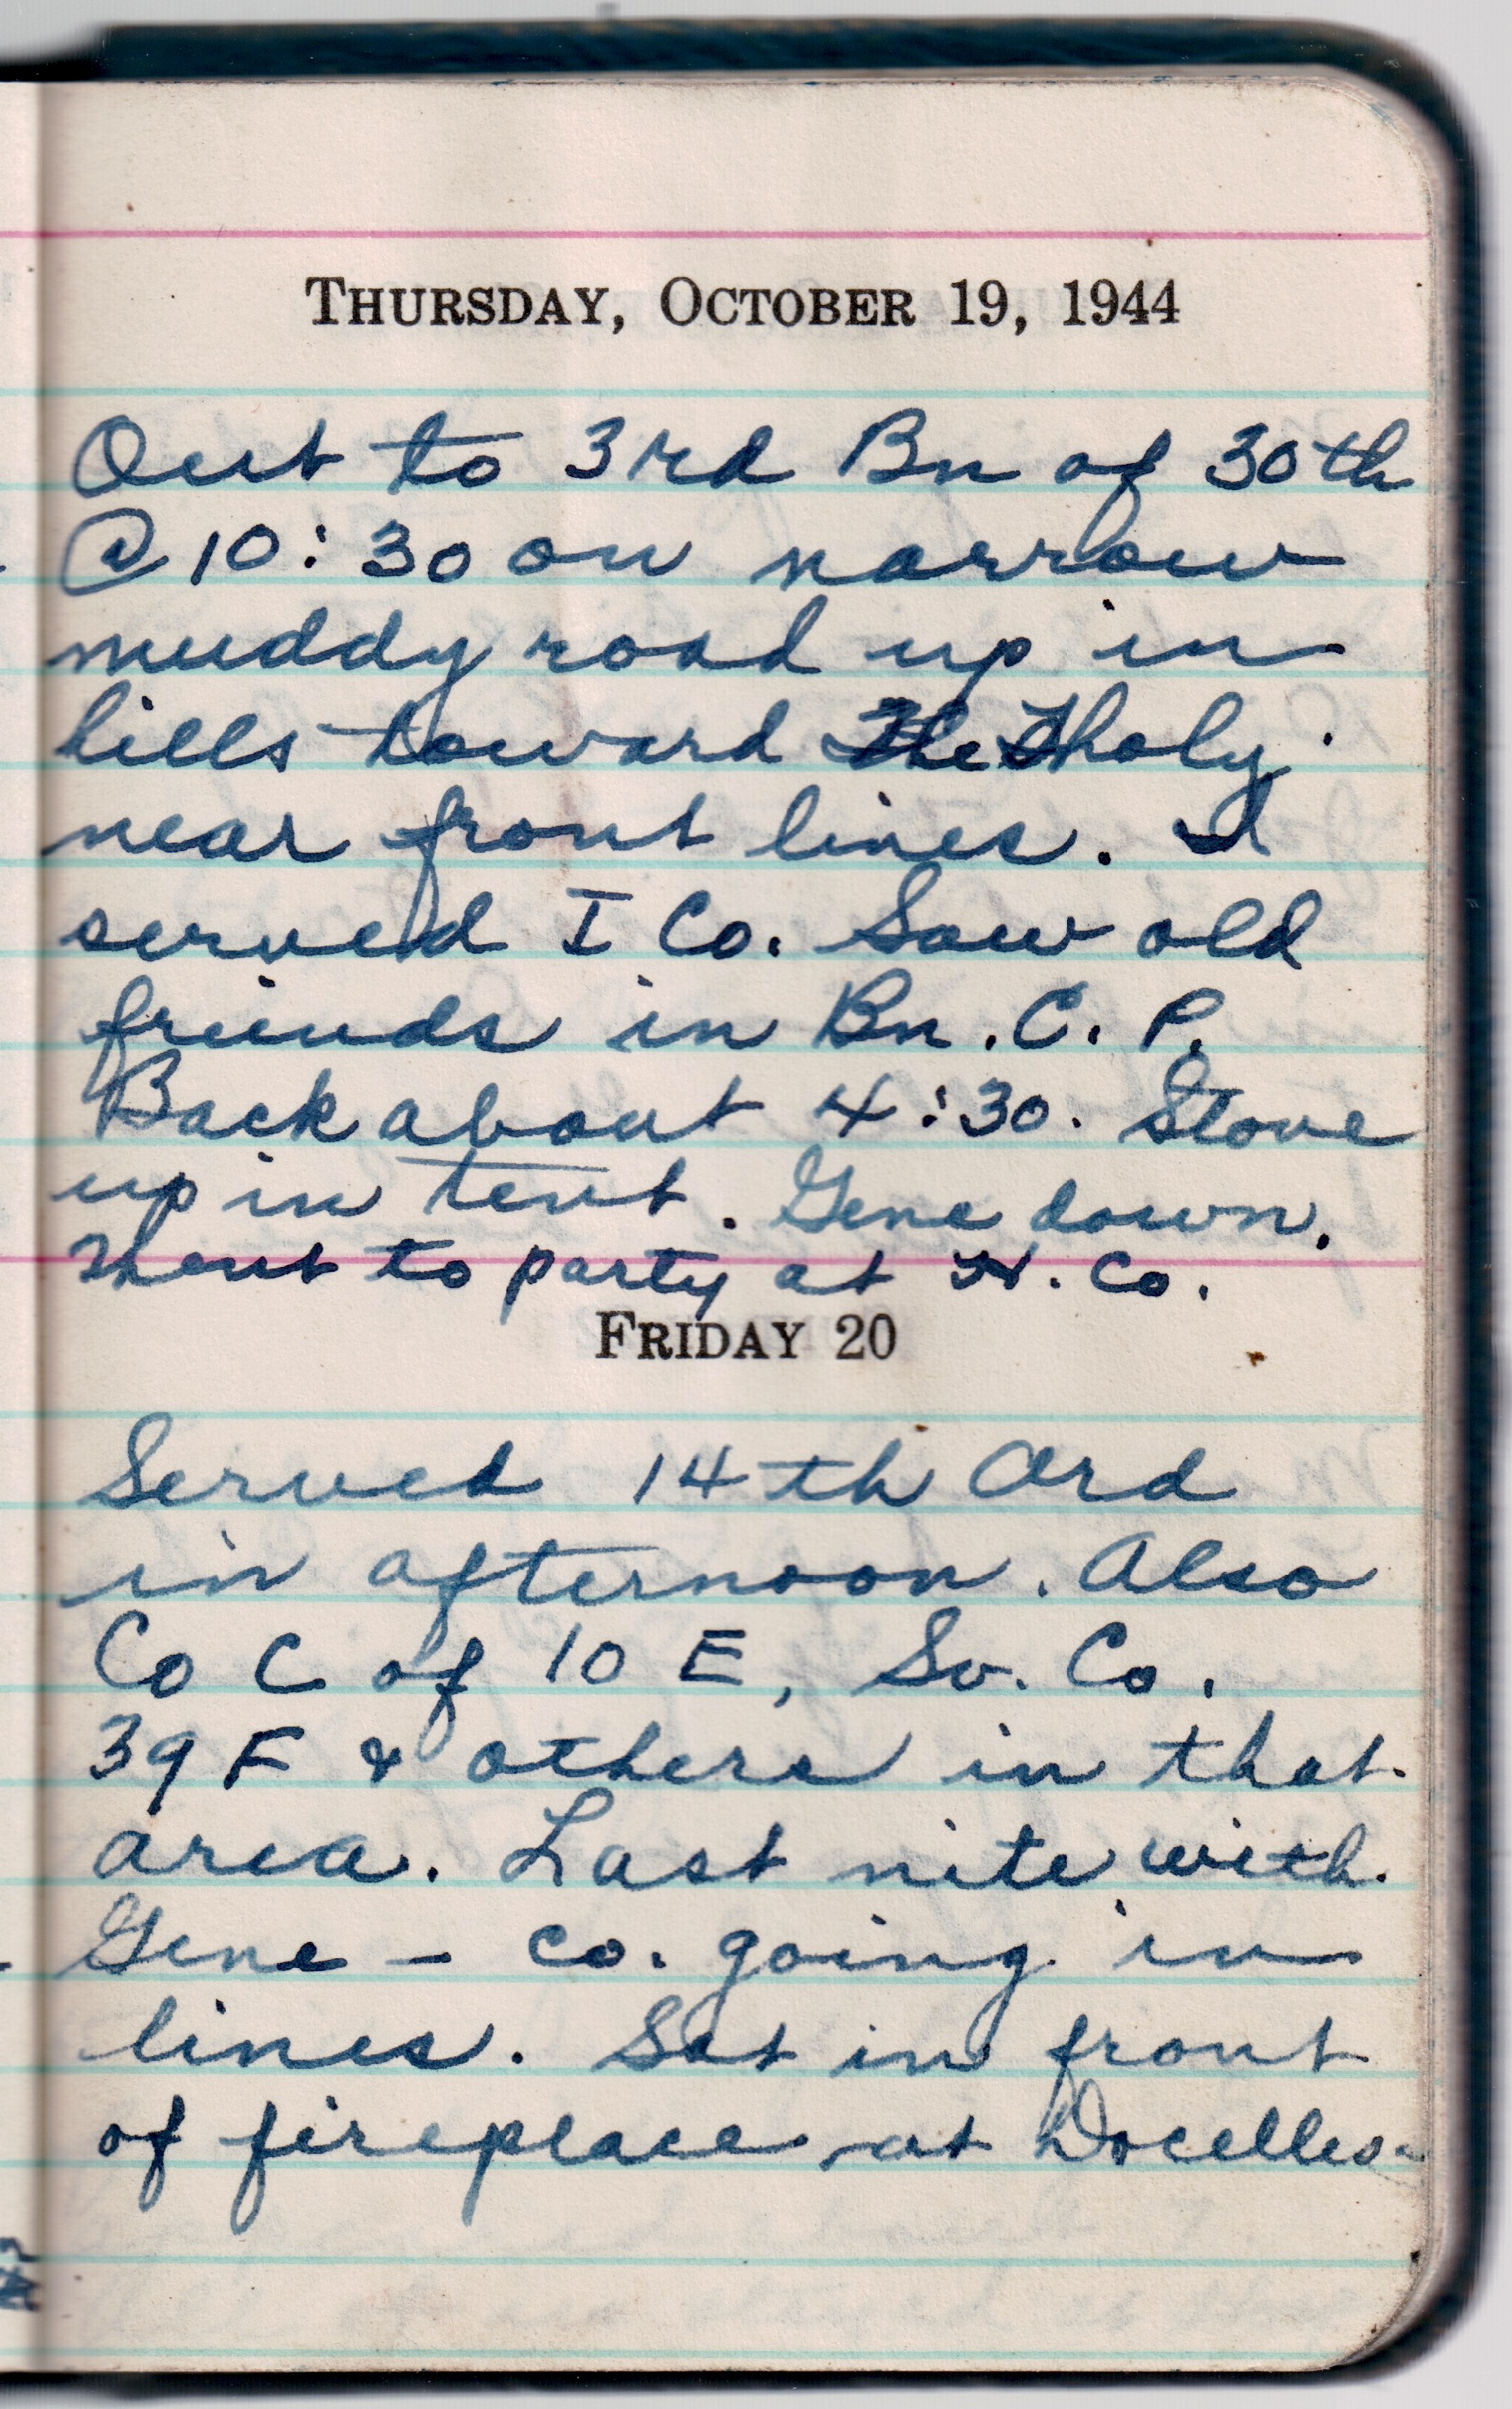 THURSDAY, OCTOBER 19, 1944
Out to 3rd Bn of 30th
@ 10:30 on narrow
muddy road up in
hills toward The Tholy
near front lines. I
served I Co. Saw old
friends in Bn. C. P.
Back about 4:30. Stove
up in tent. Gene down.
Went to party at H. Co.
FRIDAY 20
Served 14th Ord
in afternoon. Also
Co C of 10 E, Sv. Co.
39 F & others in that
area. Last nite with
Gene - co. going in
lines. Sat in front
of fireplace at Docelles